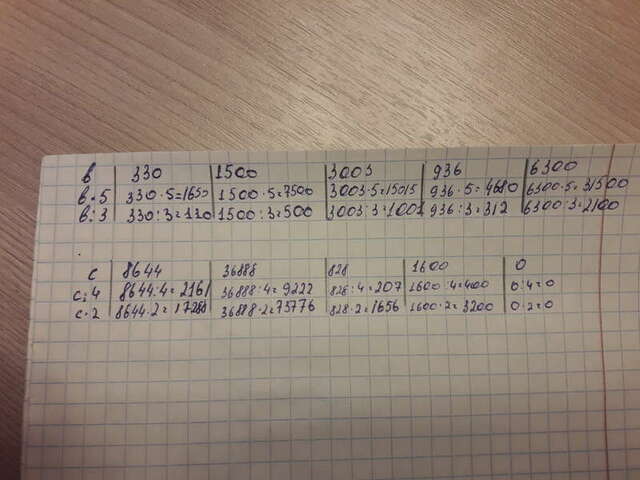 в 330 1500 3003 936 6300
в·5 330·5=1650 1500·5=7500 3003·5=15015 936·5=4680 6300·5=31500
в:3 330:3=110 1500:3=500 3003:3=1001 936:3=312 6300:3=2100
с 8644 36888 828 1600 0
с:4 8644:4=2161 36888:4=9222 828:4=207 1600:4=400 0:4=0
с·2 8644·2=17288 36888·2=75776 828·2=1656 1600·2=3200 0·2=0